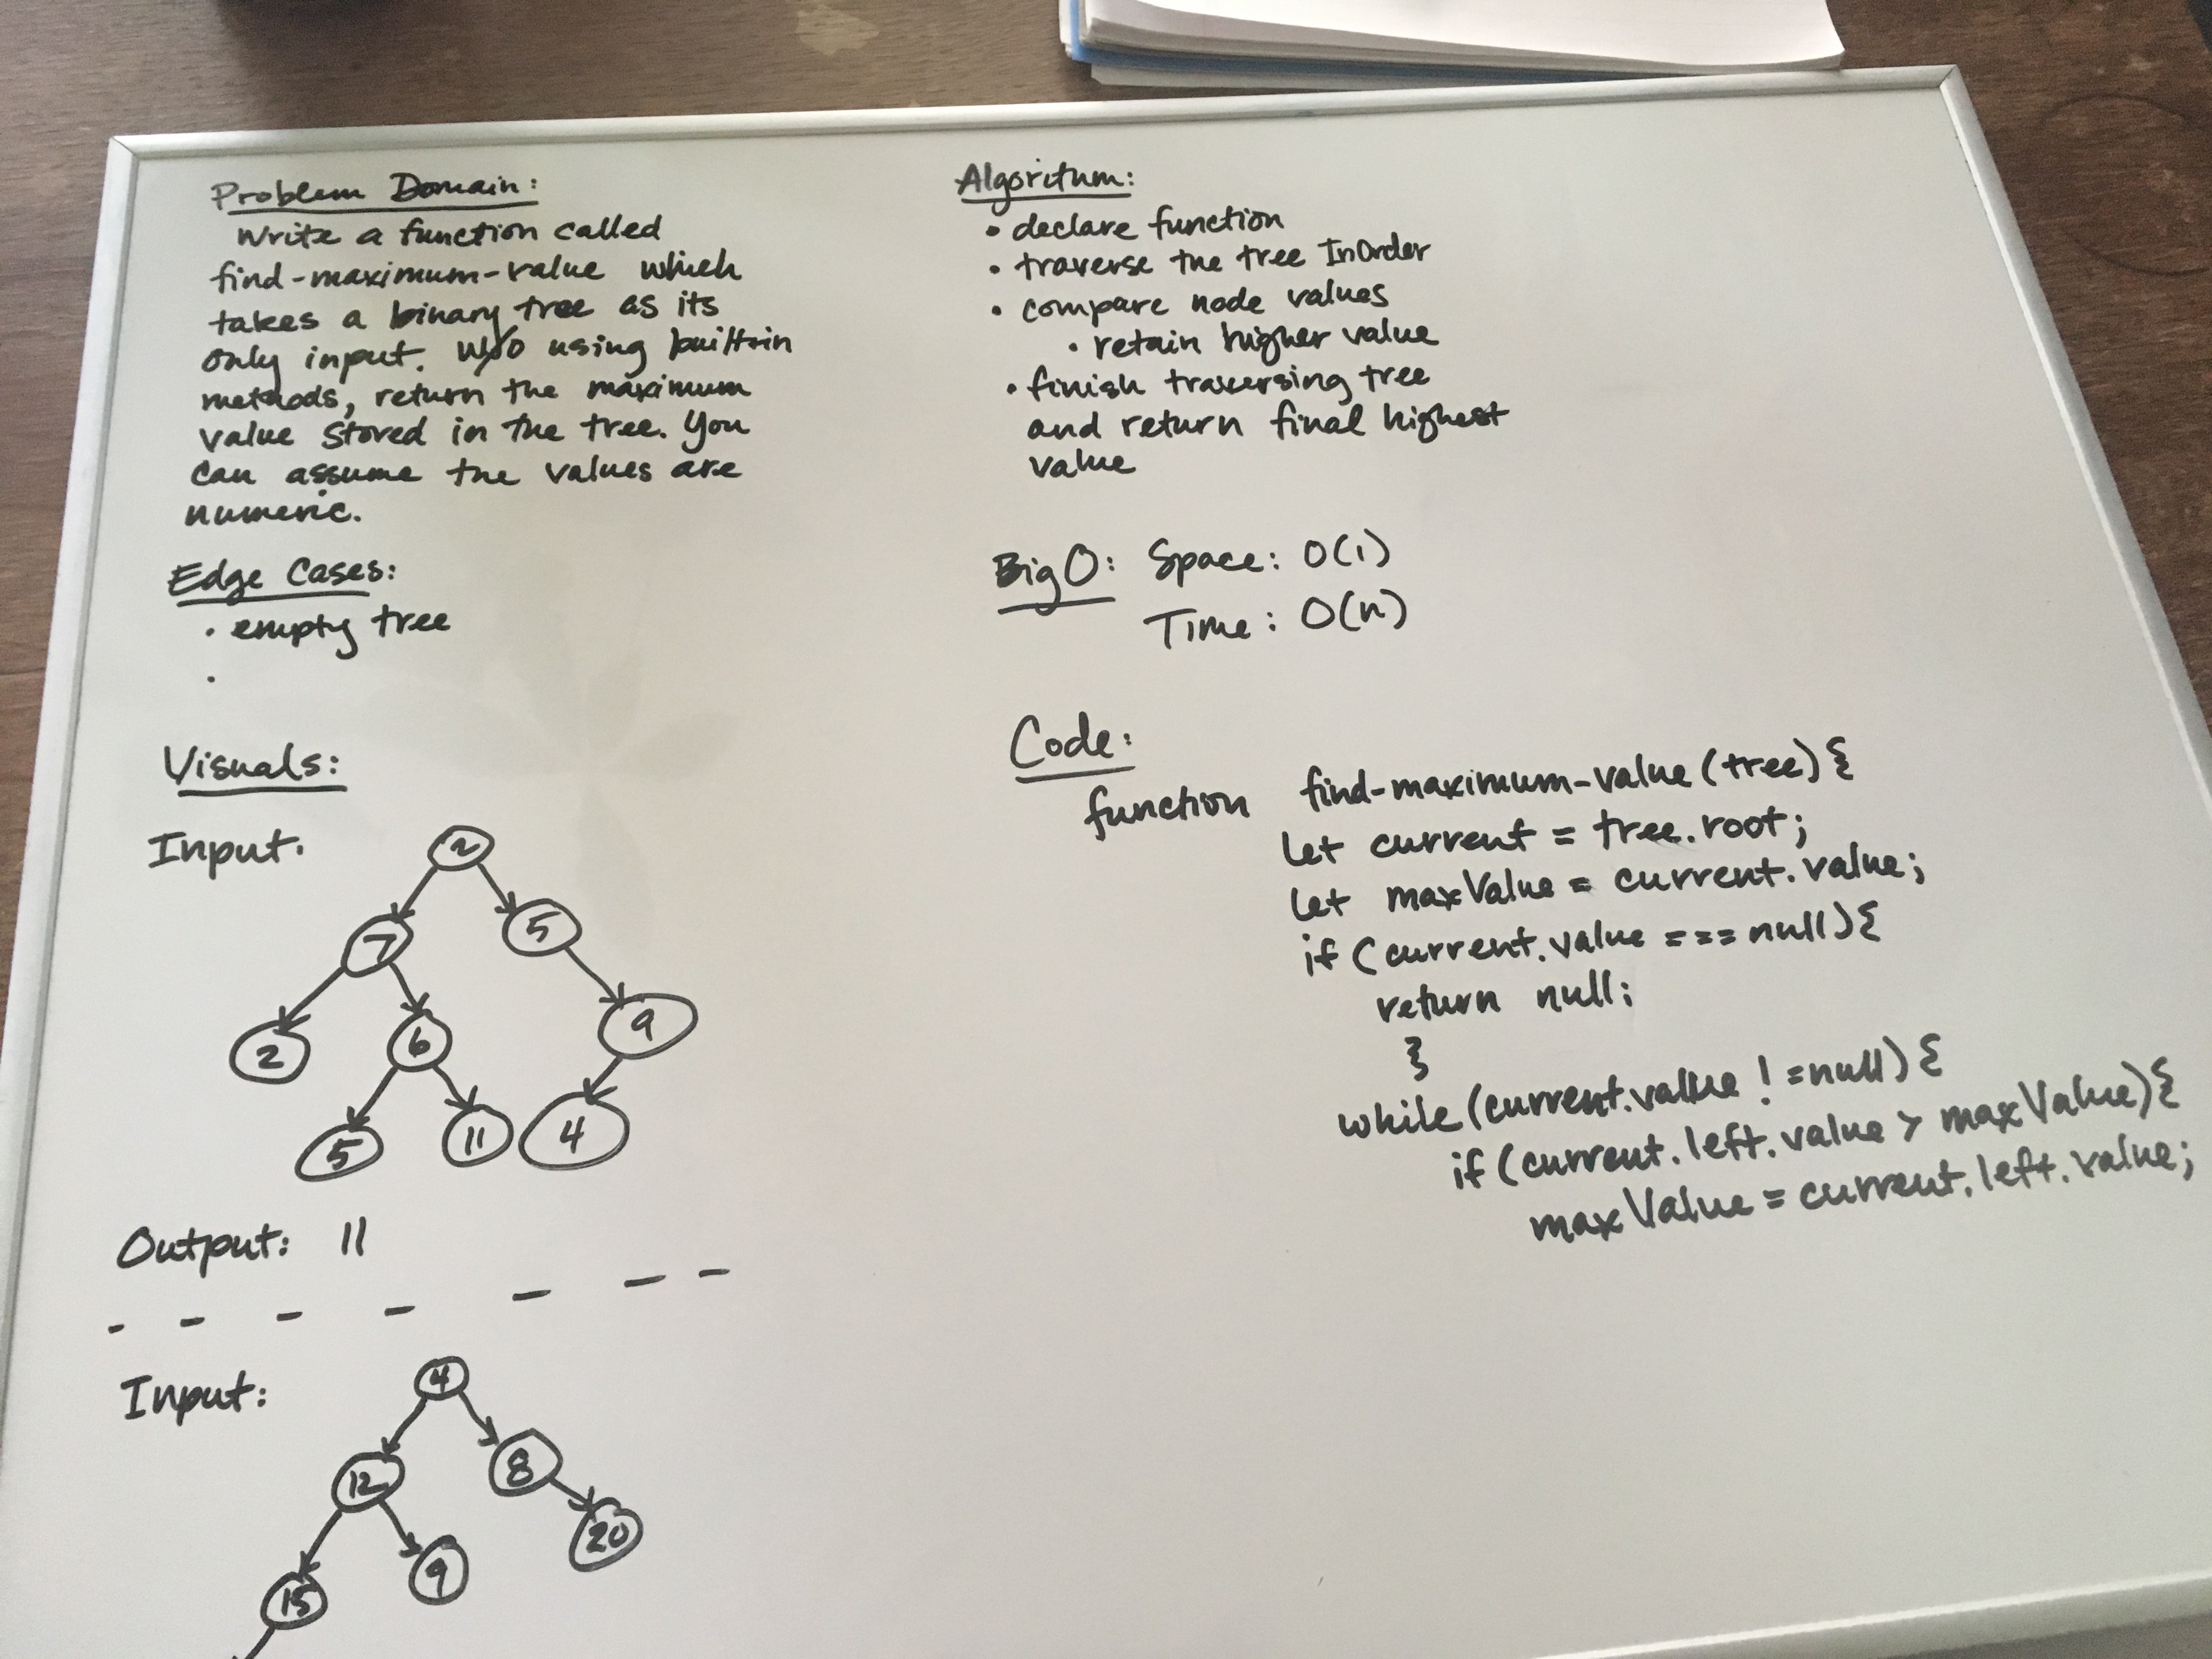 Problem Domain:
Write a function called
find-maximum-value which
takes a binary tree as its
only input. W/o using built-in
methods, return the maximum
value stored in the tree. You
can assume the values are
numeric.
Edge Cases:
• empty tree
•
Visuals:
Input.
2
7 5
2 6 9
5 11 4
Output: 11
Input:
4
12 8
15 9 20
Algoritum:
• declare function
• traverse the tree InOrder
• compare node values
• retain higher value
• finish traversing tree
and return final highest
value
Big O: Space: O(1)
Time: O(n)
Code:
function find-maximum-value (tree) {
let current = tree.root;
let maxValue = current.value;
if (current.value === null) {
return null;
}
while (current.value != null) {
if (current.left.value > maxValue) {
maxValue = current.left.value;